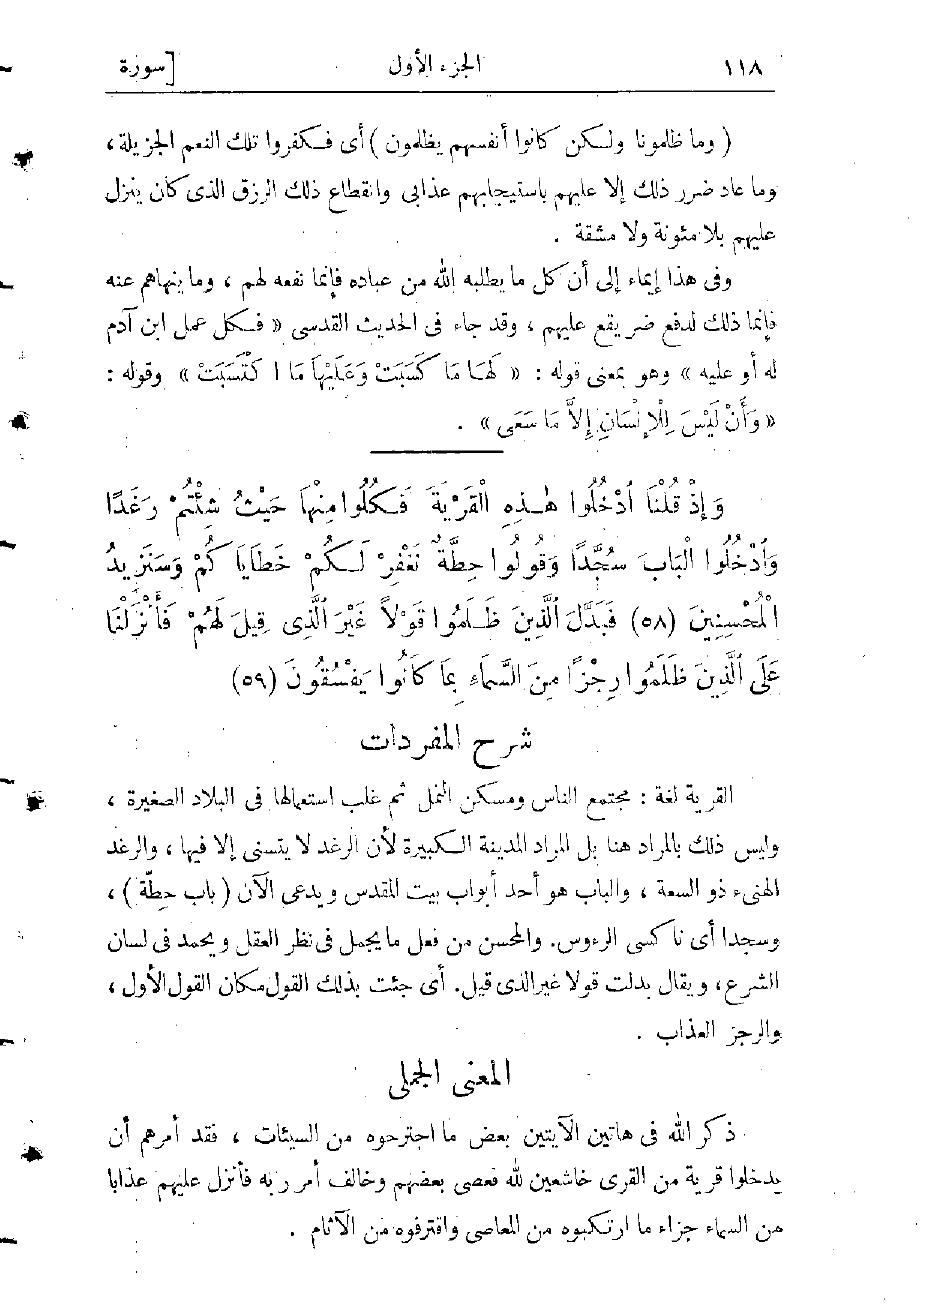 ١١٨ الجزء الأول [سورة
( وما ظلمونا ولكن كانوا أنفسهم يظلمون ) أى فكفروا تلك النعم الجزيلة ،
وما عاد ضرر ذلك إلا عليهم باستيجابهم عذابى وانقطاع ذلك الرزق الذى كان ينزل
عليهم بلا مئونة ولا مشقة .
وفى هذا إيماء إلى أن كل ما يطلبه الله من عباده فإنما نفعه لهم ، وما ينهاهم عنه
فإنما ذلك لدفع ضر يقع عليهم ، وقد جاء فى الحديث القدسى « فكل عمل ابن آدم
له أو عليه » وهو بمعنى قوله : « لَهَا مَا كَسَبَتْ وَعَلَيْهَا مَا اكْتَسَبَتْ » وقوله :
« وَأَنْ لَيْسَ لِلْإِنْسَانِ إِلاَّ مَا سَعَى » .
وَإِذْ قُلْنَا ٱدْخُلُوا هٰذِهِ الْقَرْيَةَ فَكُلُوا مِنْهَا حَيْثُ شِئْتُمْ رَغَدًا
وَٱدْخُلُوا الْبَابَ سُجَّدًا وَقُولُوا حِطَّةٌ نَغْفِرْ لَكُمْ خَطَايَاكُمْ وَسَنَزِيدُ
الْمُحْسِنِينَ (٥٨) فَبَدَّلَ ٱلَّذِينَ ظَلَمُوا قَوْلاً غَيْرَ ٱلَّذِى قِيلَ لَهُمْ فَأَنْزَلْنَا
عَلَى ٱلَّذِينَ ظَلَمُوا رِجْزًا مِنَ السَّمَاءِ بِمَا كَانُوا يَفْسُقُونَ (٥٩)
شرح المفردات
القرية لغة : مجتمع الناس ومسكن النمل ثم غلب استعمالها فى البلاد الصغيرة ،
وليس ذلك بالمراد هنا بل المراد المدينة الكبيرة لأن الرغد لا يتسنى إلا فيها ، والرغد
الهنىء ذو السعة ، والباب هو أحد أبواب بيت المقدس ويدعى الآن ( باب حِطّة ) ،
وسجدا أى ناكسى الرءوس. والمحسن من فعل ما يجمل فى نظر العقل ويحمد فى لسان
الشرع، ويقال بدلت قولا غير الذى قيل. أى جئت بذلك القول مكان القول الأول ،
والرجز العذاب .
المعنى الجملى
ذكر الله فى هاتين الآيتين بعض ما اجترحوه من السيئات ، فقد أمرهم أن
يدخلوا قرية من القرى خاشعين لله فعصى بعضهم وخالف أمر ربه فأنزل عليهم عذابا
من السماء جزاء ما ارتكبوه من المعاصى واقترفوه من الآثام .